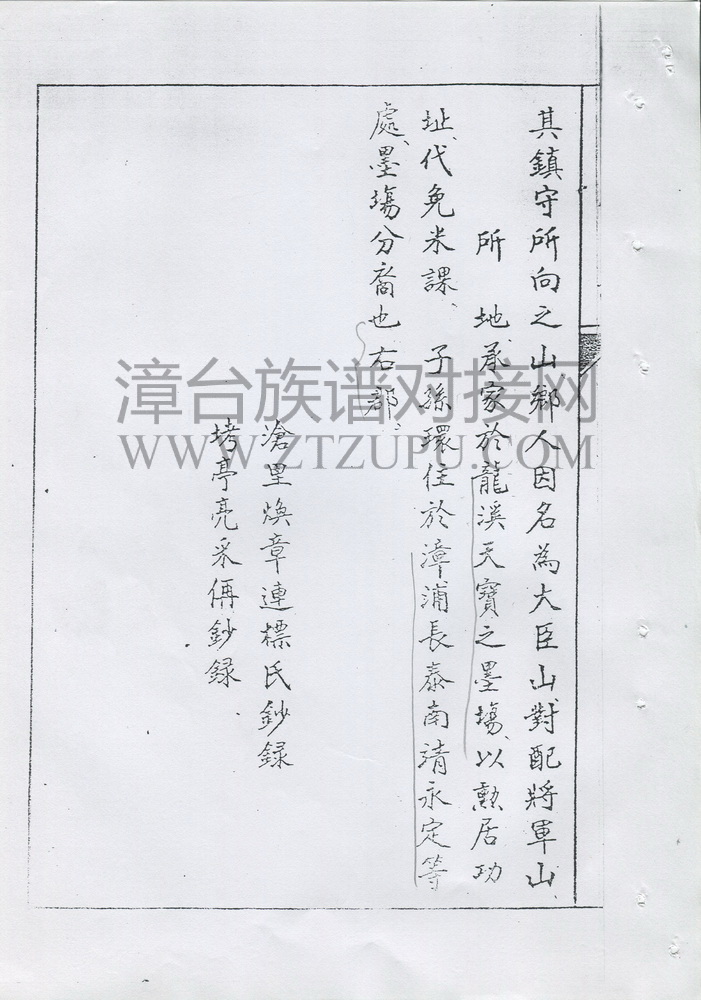 其鎮守所向之山鄉人因名為大臣山、對配將軍山、
所地、承家於龍溪天寶之墨場、以勲居功
址、代免米課、子孫環住於漳浦長泰南靖永定等
處、墨場分裔也右部、
滄里煥章連標氏鈔録
垮亭亮采偁鈔録
漳台族谱对接网
WWW.ZTZUPU.COM